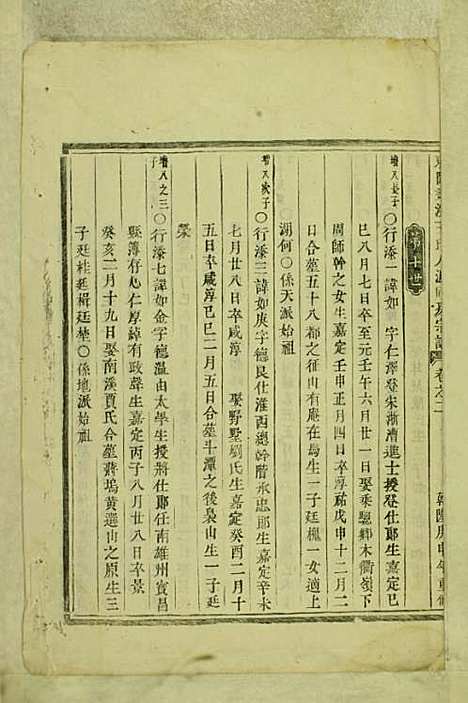 宗譜 卷之二 庚申年重修
增八長子〇行漆一諱如 字仁澤登宋漸漕進士授登仕郎生嘉定己
巳八月七日卒至元壬午六月廿一日娶乘驄鄉木衢嶺下
周師幹之女生嘉定壬申正月四日卒淳祐戊申十二月二
日合墓五十八都之征山有庵在焉生一子廷槐一女適上
湖何〇係天派始祖
增八次子〇行漆三諱如庚字德艮仕淮西總幹階承忠郎生嘉定辛未
七月廿八日卒咸淳 娶野墅劉氏生嘉定癸酉二月十
五日卒咸淳己巳二月五日合墓斗潭之後裊山生一子廷
榮
增八之三子〇行漆七諱如金字德溫由太學生授將仕郎任南雄州賓昌
縣簿存心仁厚綽有政聲生嘉定丙子八月廿八日卒景
癸亥二月十九日娶南溪賈氏合墓蔣塢黃遶山之原生三
子廷桂廷楫廷埜〇係地派始祖